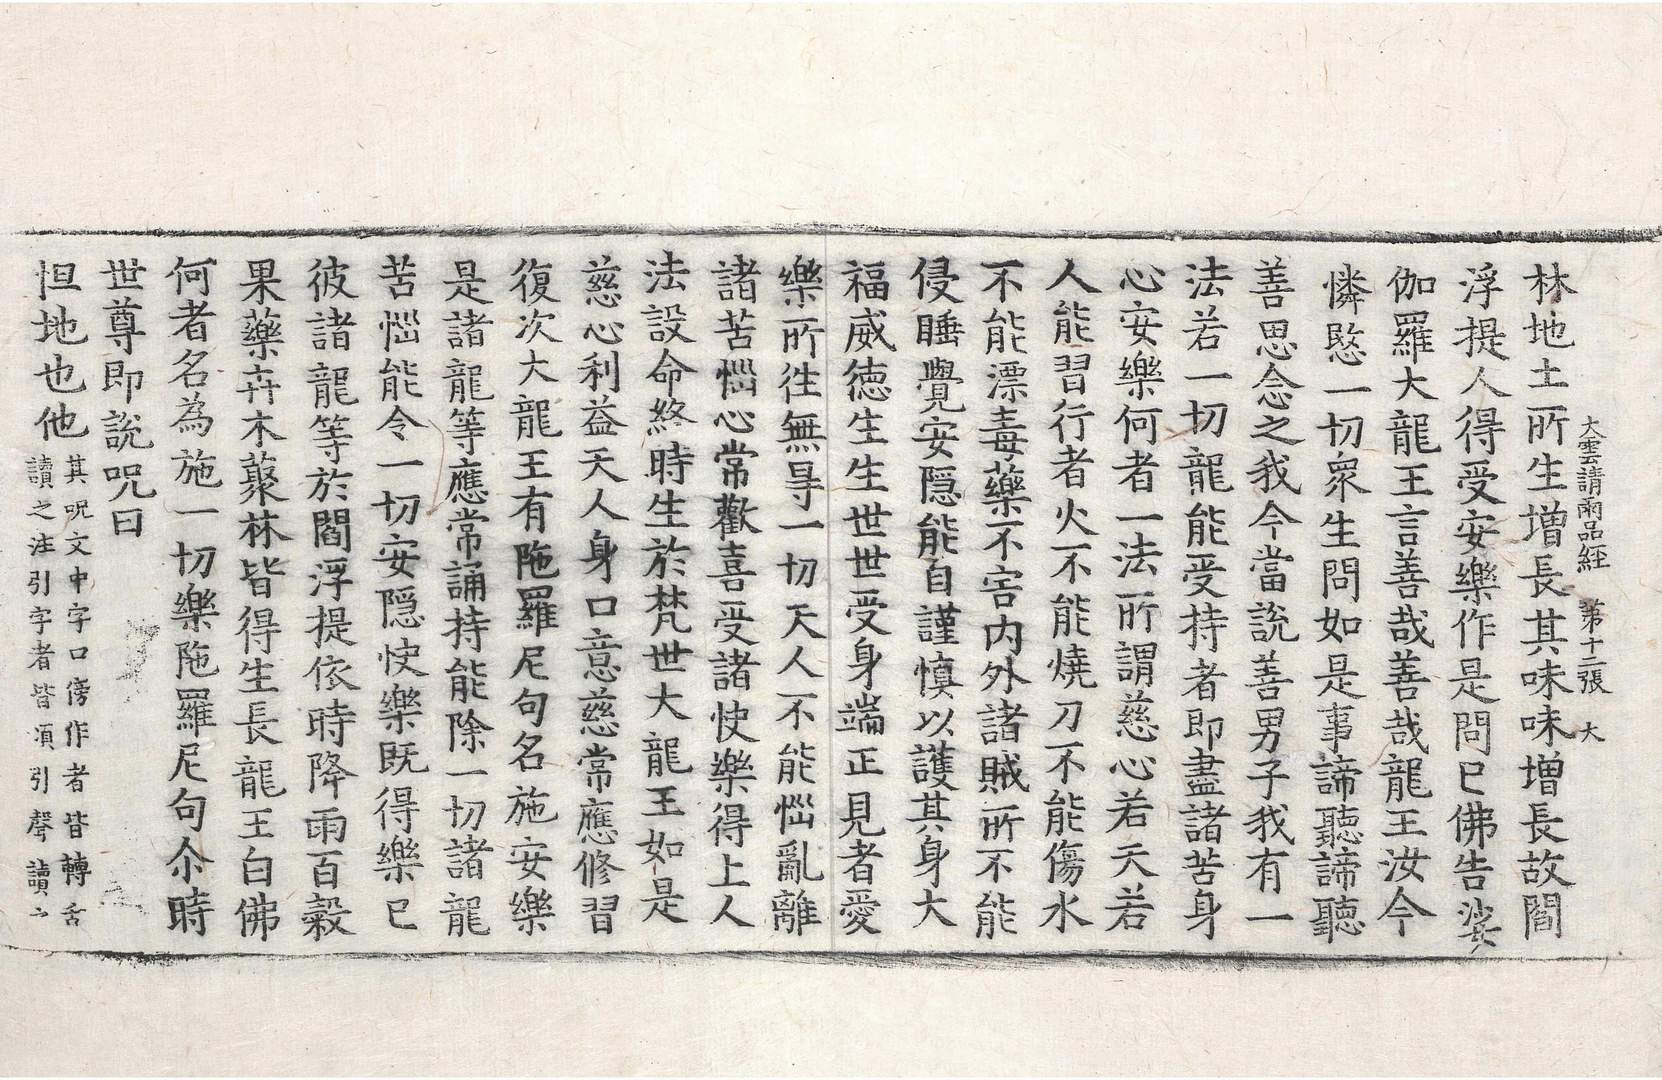 大雲請雨品經 第十二張 大
林地土所生增長其味味增長故閻
浮提人得受安樂作是問已佛告娑
伽羅大龍王言善哉善哉龍王汝今
憐愍一切衆生問如是事諦聽諦聽
善思念之我今當說善男子我有一
法若一切龍能受持者即盡諸苦身
心安樂何者一法所謂慈心若天若
人能習行者火不能燒刀不能傷水
不能漂毒藥不害内外諸賊所不能
侵睡覺安隱能自謹慎以護其身大
福威徳生生世世受身端正見者愛
樂所徃無㝵一切天人不能惱亂離
諸苦惱心常歡喜受諸快樂得上人
法設命終時生於梵世大龍王如是
慈心利益天人身口意慈常應修習
復次大龍王有陁羅尼句名施安樂
是諸龍等應常誦持能除一切諸龍
苦惱能令一切安隱快樂既得樂已
彼諸龍等於閻浮提依時降雨百穀
果藥卉木藂林皆得生長龍王白佛
何者名為施一切樂陁羅尼句尒時
世尊即說呪曰
怛地也他
其呪文中字口傍作者皆轉舌
讀之注引字者皆湏引聲讀之